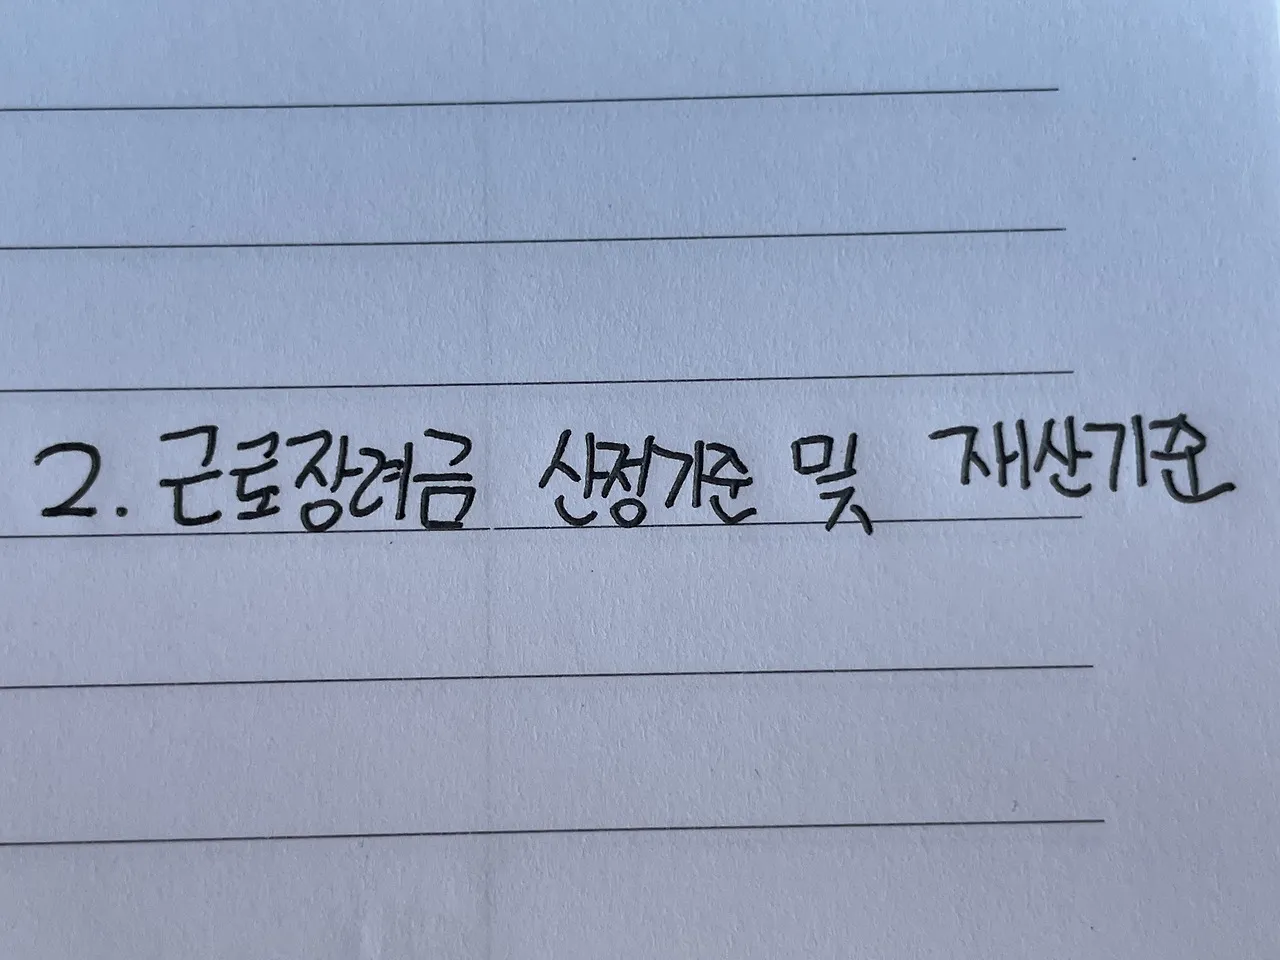 2. 근로장려금 산정기준 및 재산기준